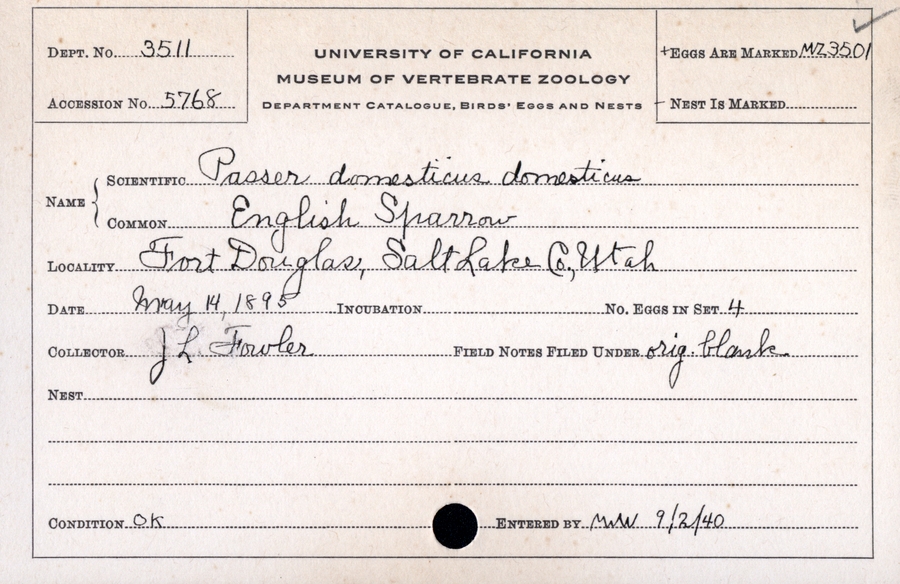 DEPT. NO. 3511
ACCESSION NO. 5768
UNIVERSITY OF CALIFORNIA
MUSEUM OF VERTEBRATE ZOOLOGY
DEPARTMENT CATALOGUE, BIRDS' EGGS AND NESTS
+EGGS ARE MARKED MZ3501
- NEST IS MARKED
NAME
SCIENTIFIC Passer domesticus domesticus
COMMON English Sparrow
LOCALITY Fort Douglas, Salt Lake Co, Utah
DATE May 14, 1895 INCUBATION NO. EGGS IN SET 4
COLLECTOR J L Fowler FIELD NOTES FILED UNDER orig. blank
NEST
CONDITION OK ENTERED BY 9/2/40